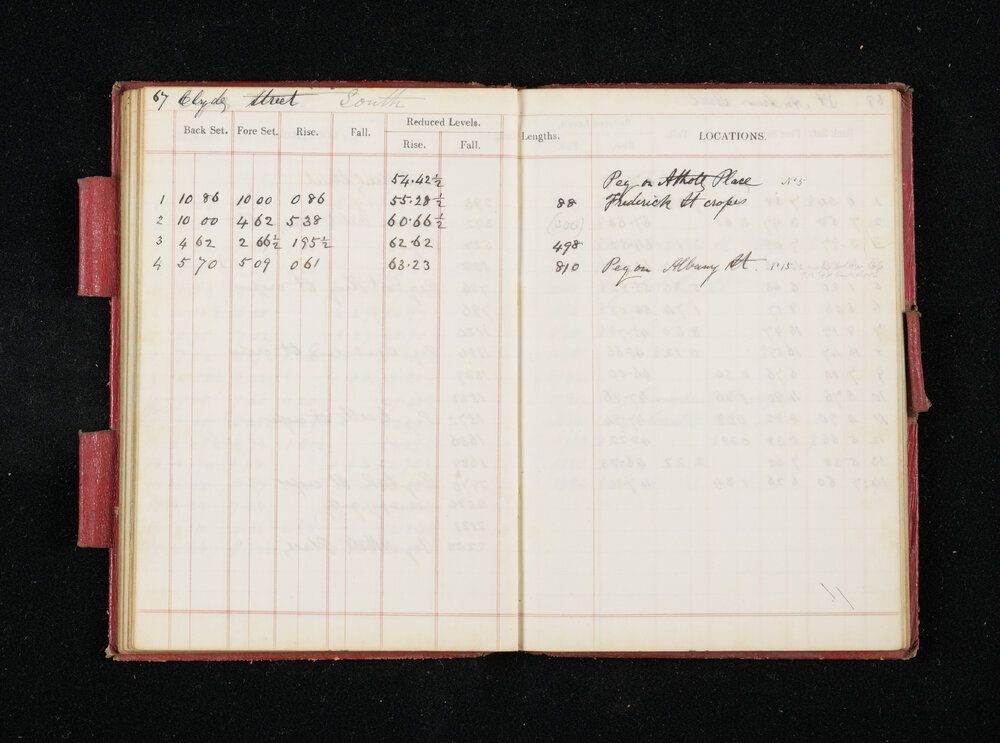 67 Clyde Street South
Back Set. Fore Set. Rise. Fall. Reduced Levels. Lengths. LOCATIONS.
Rise. Fall.
54.42½ Peg on Atholl Place No 5
1 10 86 10 00 0 86 55.28½ 88 Frederick St cropes
2 10 00 4 62 5 38 60.66½
3 4 62 2 66½ 1 95½ 62.62 498
4 5 70 5 09 0 61 63.23 810 Peg on Albany St. No 15